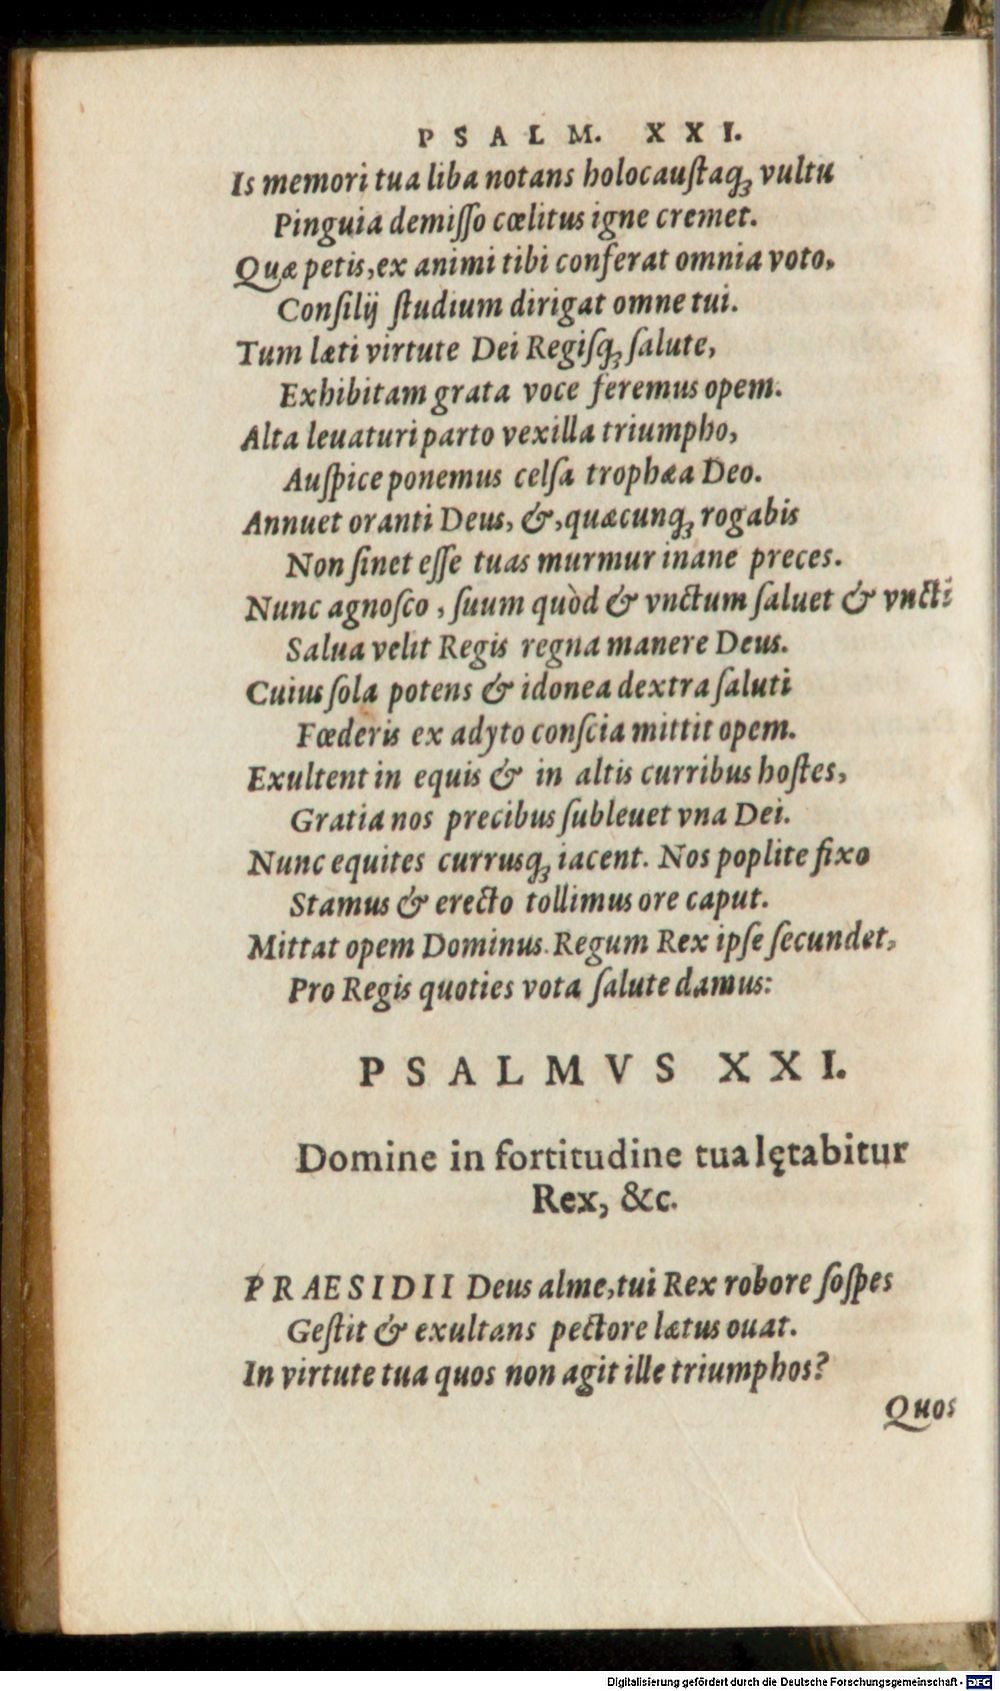 PSALM. XXI.
Is memori tua liba notans holocauſtaq́ꝫ vultu
Pinguia demiſſo cœlitus igne cremet.
Quæ petis, ex animi tibi conferat omnia voto,
Conſilij ſtudium dirigat omne tui.
Tum læti virtute Dei Regiſq́ꝫ ſalute,
Exhibitam grata voce feremus opem.
Alta leuaturi parto vexilla triumpho,
Auſpice ponemus celſa trophæa Deo.
Annuet oranti Deus, &, quæcunq́ꝫ rogabis
Non ſinet eſſe tuas murmur inane preces.
Nunc agnoſco, ſuum quòd & vnctum ſaluet & vncti
Salua velit Regis regna manere Deus.
Cuius ſola potens & idonea dextra ſaluti
Fœderis ex adyto conſcia mittit opem.
Exultent in equis & in altis curribus hoſtes,
Gratia nos precibus ſubleuet vna Dei.
Nunc equites currusq́ꝫ iacent. Nos poplite fixo
Stamus & erecto tollimus ore caput.
Mittat opem Dominus. Regum Rex ipſe ſecundet,
Pro Regis quoties vota ſalute damus:
PSALMVS XXI.
Domine in fortitudine tua lętabitur
Rex, &c.
PRAESIDII Deus alme, tui Rex robore ſoſpes
Geſtit & exultans pectore lætus ouat.
In virtute tua quos non agit ille triumphos?
Quos
Digitalisierung gefördert durch die Deutsche Forschungsgemeinschaft - DFG